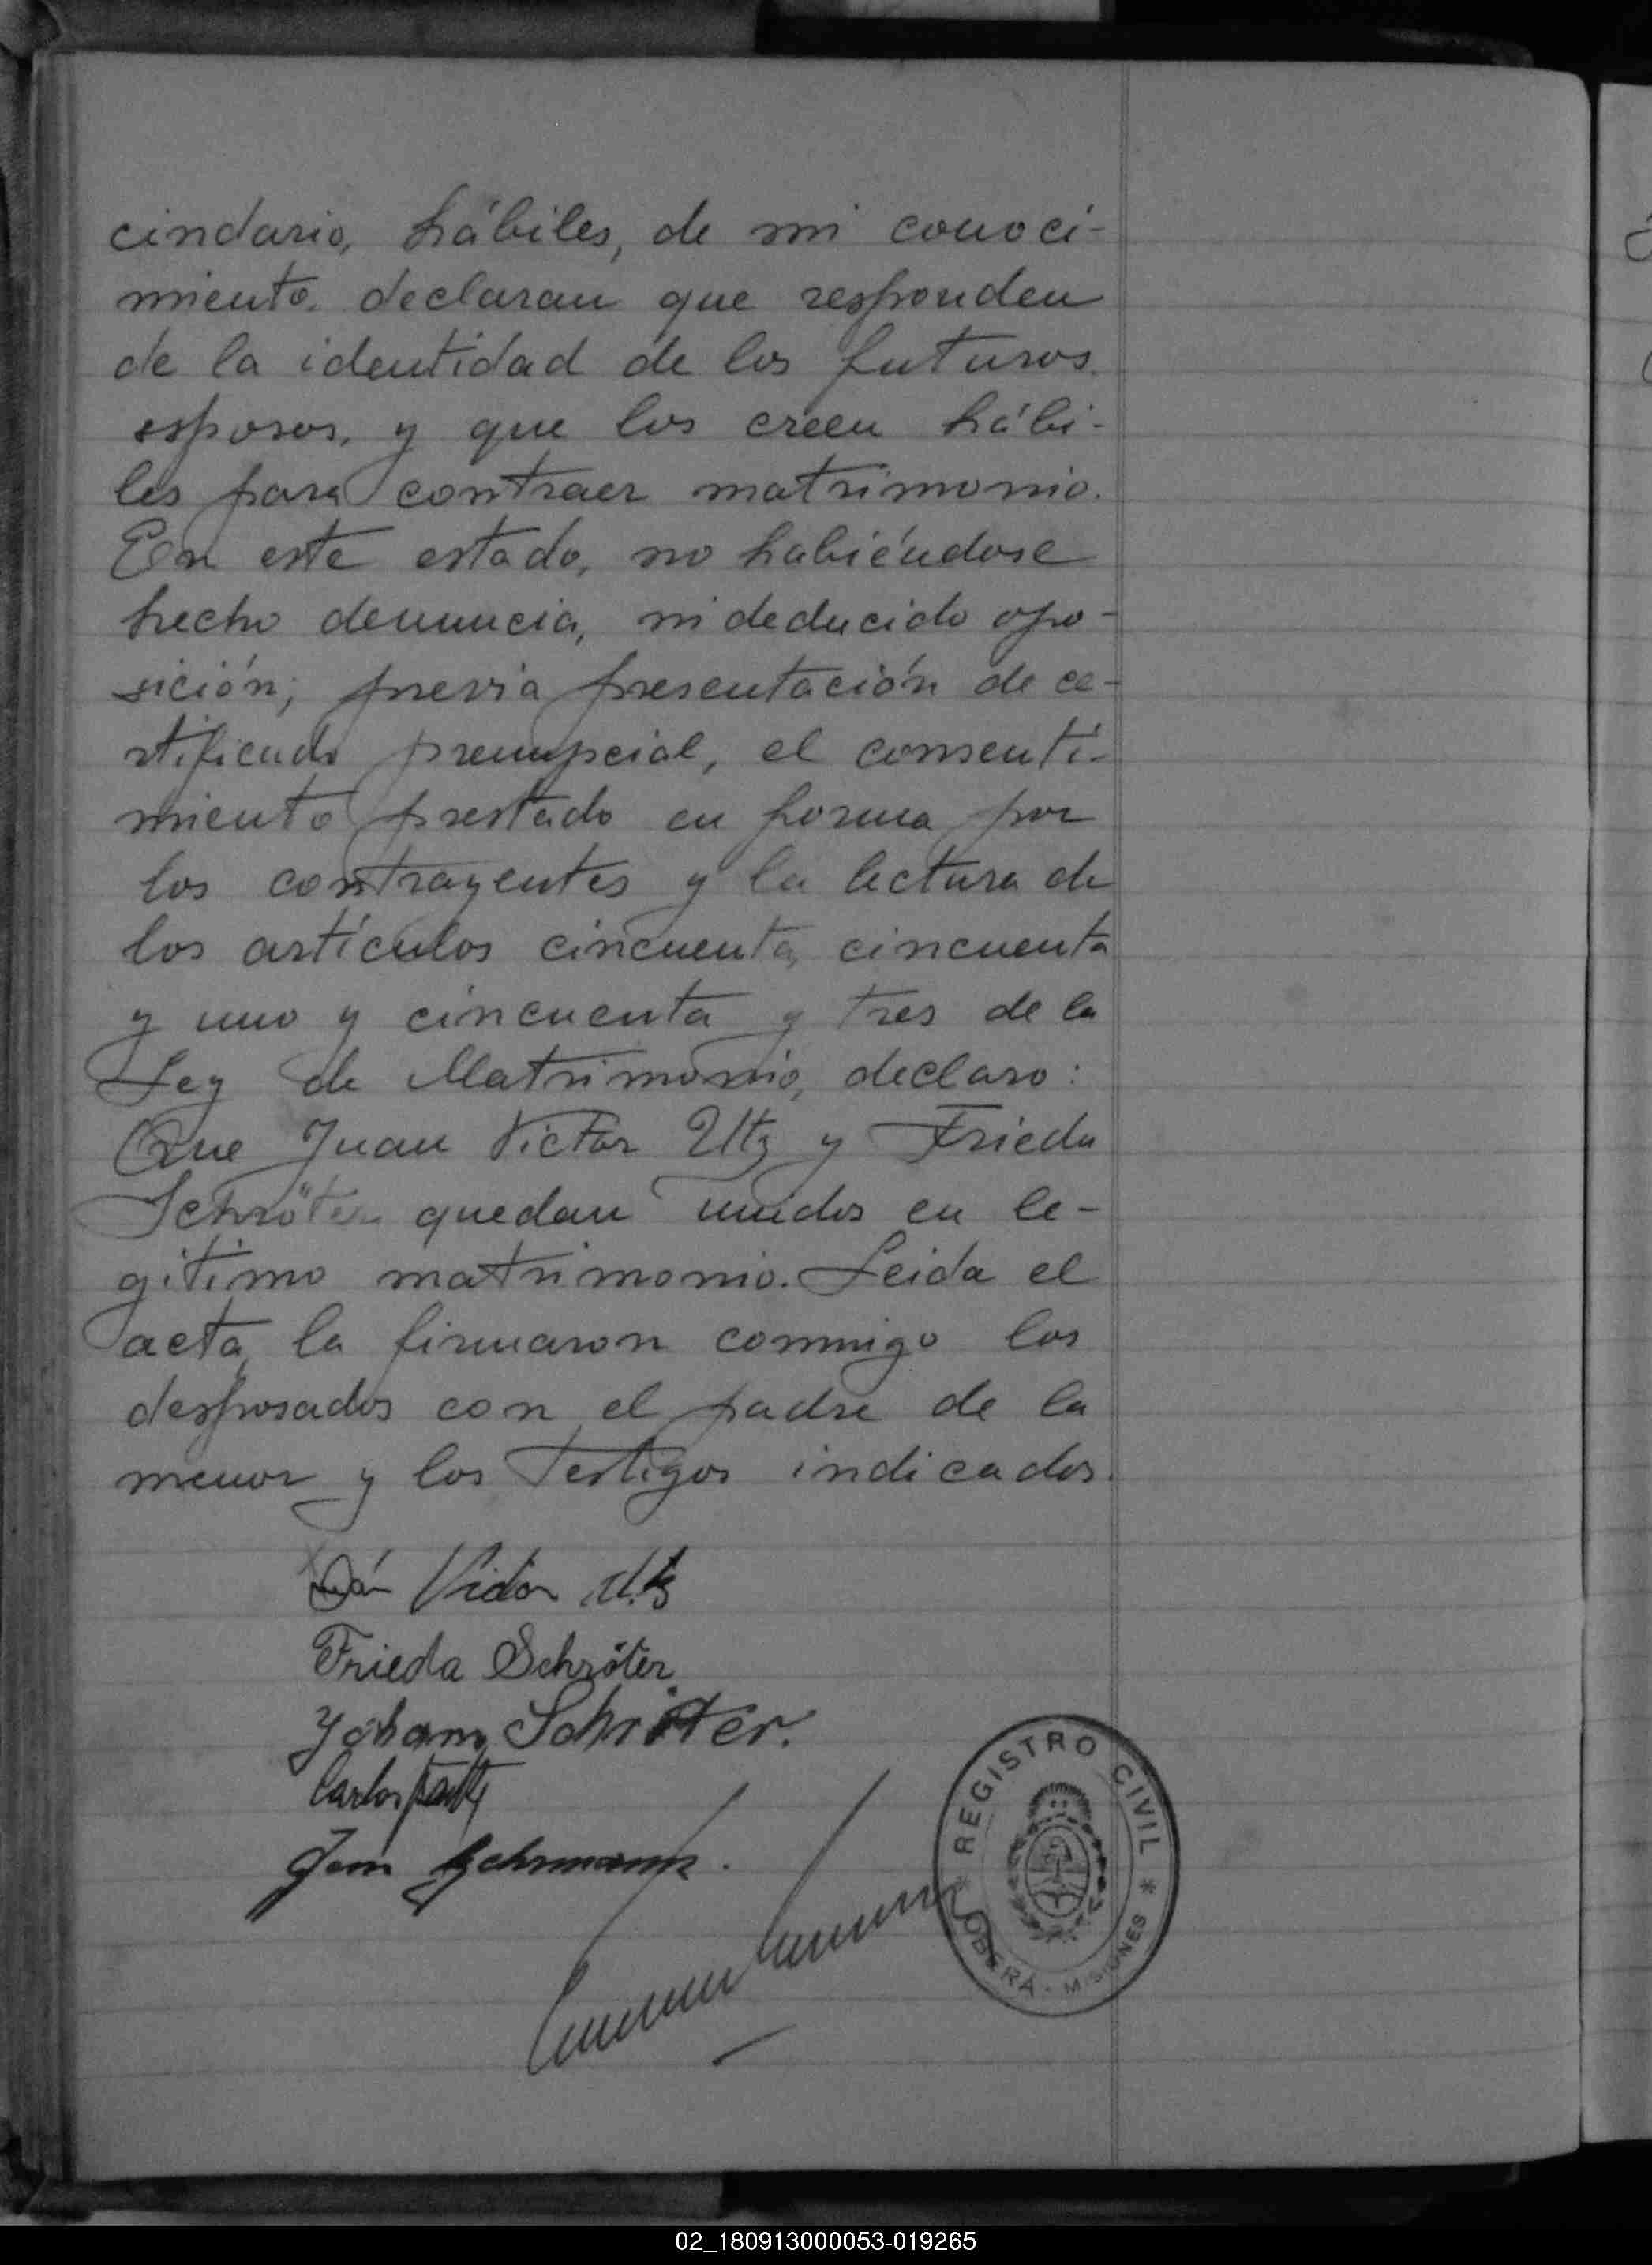 cindario, hábiles, de mi conoci-
miento. declaran que responden
de la identidad de los futuros
esposos, y que los creen hábi-
les para contraer matrimonio.
En este estado, no habiéndose
hecho denuncia, ni deducido opo-
sición; previa presentación de ce-
rtificado prenupcial, el consenti-
miento prestado en forma por
los contrayentes y la lectura de
los artículos cincuenta, cincuenta
y uno y cincuenta y tres de la
Ley de Matrimonio, declaro:
Que Juan Victor Utz y Frieda
Schröter quedan unidos en le-
gítimo matrimonio. Leida el
acta, la firmaron conmigo los
desposados con el padre de la
menor y los Testigos indicados.
Utz
Frieda Schröter
Johann Schröter.
Carlos
REGISTRO CIVIL
OBERÁ - MISIONES
02_180913000053-019265